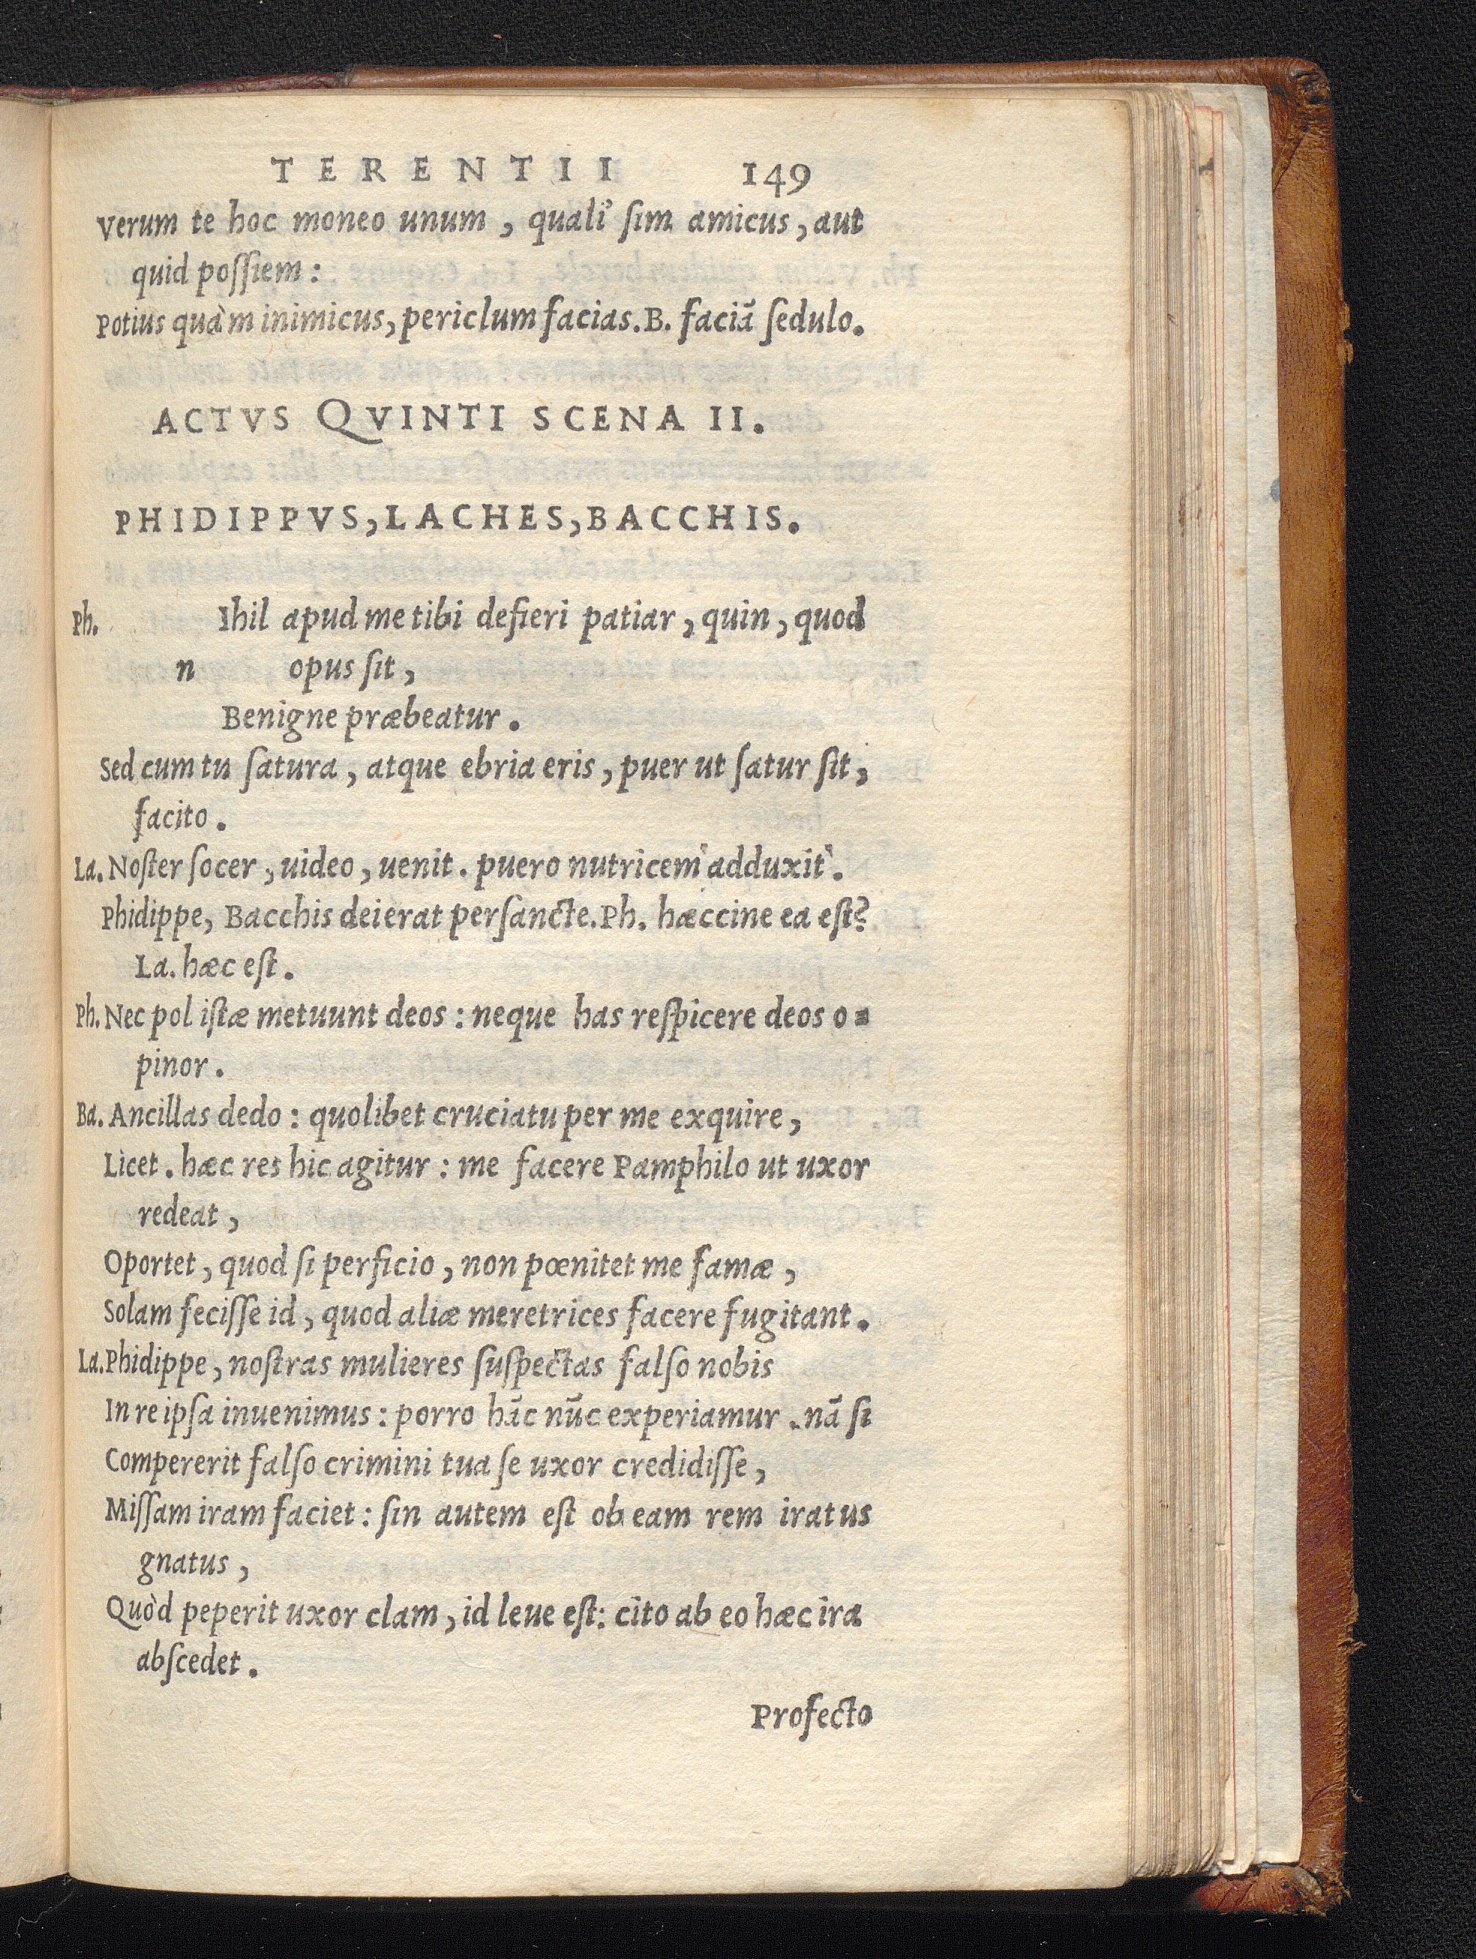 TERENTII 149
Verum te hoc moneo unum, quali' sim amicus, aut
quid possiem:
Potius quàm inimicus, periclum facias. B. faciã sedulo.
ACTVS QVINTI SCENA II.
PHIDIPPVS, LACHES, BACCHIS.
Ph. Ihil apud me tibi defieri patiar, quin, quod
n opus sit,
Benigne præbeatur.
Sed cum tu satura, atque ebria eris, puer ut satur sit,
facito.
La. Noster socer, uideo, uenit. puero nutricem` adduxit`.
Phidippe, Bacchis deierat persancte. Ph. hæccine ea est?
La. hæc est.
Ph. Nec pol istæ metuunt deos: neque has respicere deos o=
pinor.
Ba. Ancillas dedo: quolibet cruciatu per me exquire,
Licet. hæc res hic agitur: me facere Pamphilo ut uxor
redeat,
Oportet, quod si perficio, non pœnitet me famæ,
Solam fecisse id, quod aliæ meretrices facere fugitant.
La. Phidippe, nostras mulieres suspectas falso nobis
In re ipsa inuenimus: porro hãc nũc experiamur. nã si
Compererit falso crimini tua se uxor credidisse,
Missam iram faciet: sin autem est ob eam rem iratus
gnatus,
Quòd peperit uxor clam, id leue est: cito ab eo hæc ira
abscedet.
Profecto